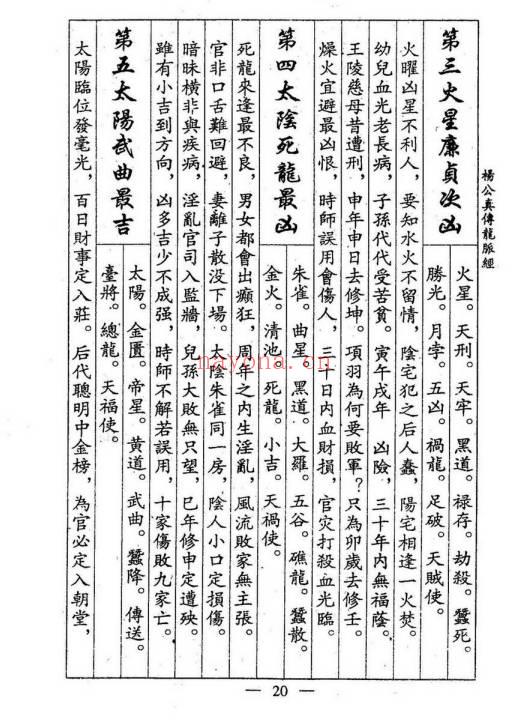 楊公真傳龍脈經
第三火星廉貞次凶
火星。天刑。天牢。黑道。祿存。劫殺。蠶死。
勝光。月孛。五凶。禍龍。足破。天賊使。
火曜凶星不利人，要知水火不留情，陰宅犯之后人蠢，陽宅相逢一火焚。
幼兒血光老長病，子孫代代受苦貧。寅午戌年 凶險，三十年内無福蔭。
王陵慈母昔遭刑，申年申日去修坤。項羽為何要敗軍？只為卯歲去修壬。
燥火宜避最凶恨，時師誤用會傷人，三十日内血財損，官灾打殺血光臨。
第四太陰死龍最凶
朱雀。曲星。黑道。大羅。五谷。礁龍。蠶散。
金火。清池。死龍。小吉。天禍使。
死龍來逢最不良，男女都會出癲狂，周年之内生淫亂，風流敗家無主張。
官非口舌難回避，妻離子散没下場。太陰朱雀同一房，陰人小口定損傷。
暗昧橫非與疾病，淫亂官司入監牆，兒孫大敗無只望，巳年修申定遭殃。
雖有小吉到方向，凶多吉少不成强，時師不解若誤用，十家傷敗九家亡。
第五太陽武曲最吉
太陽。金匱。帝星。黄道。武曲。蠶降。傳送。
臺將。總龍。天福使。
太陽臨位發毫光，百日財事定入莊。后代聰明中金榜，為官必定入朝堂，
— 20 —
nayona.cn